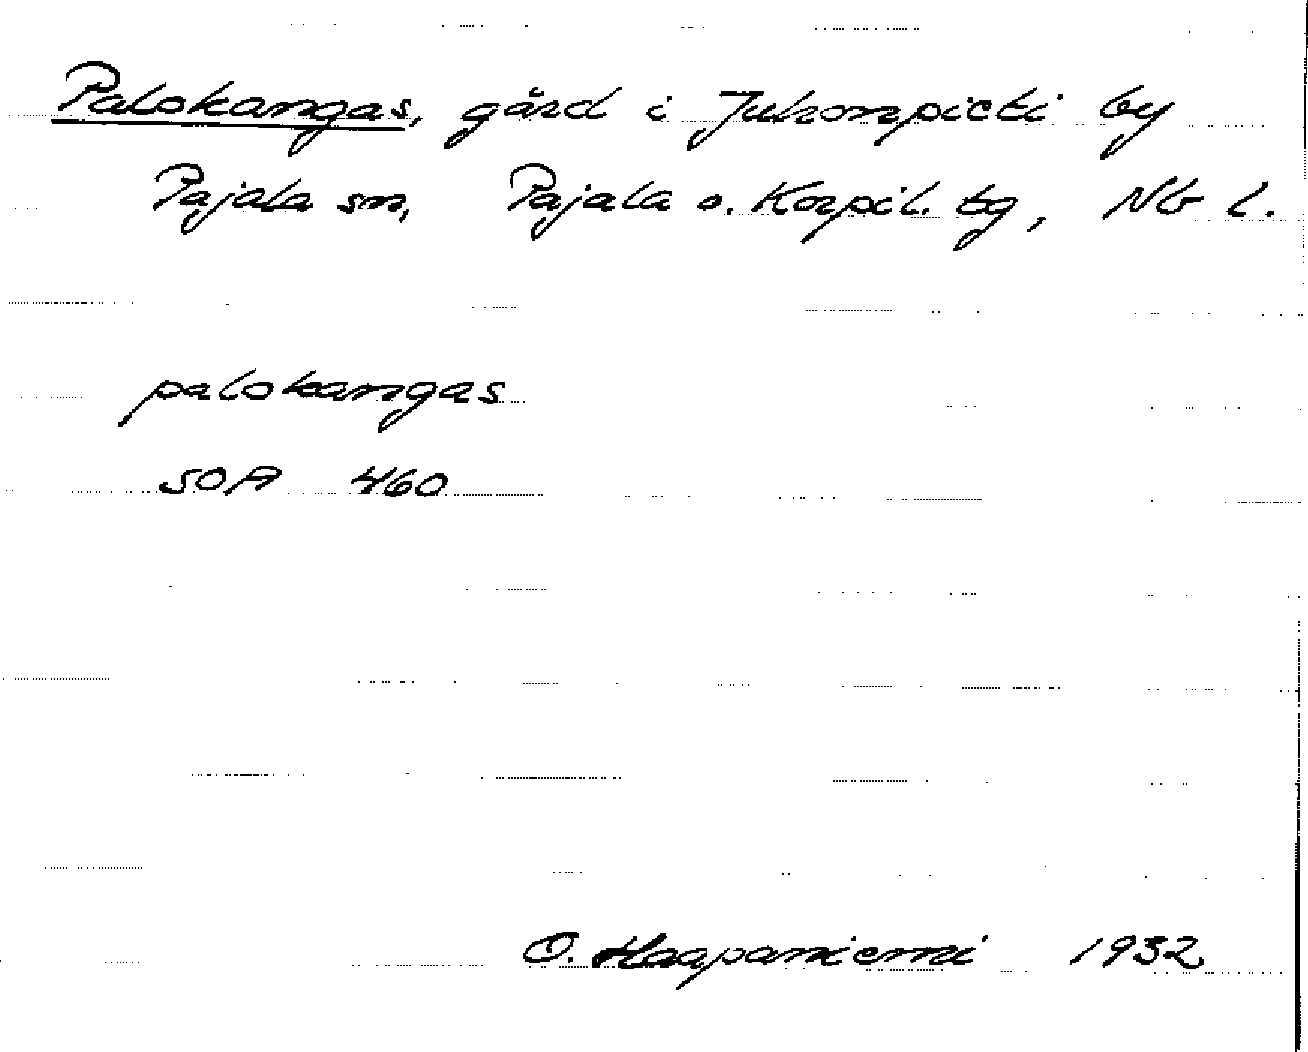 Palokangas, gård i Juhonpieti by
Pajala sn, Pajala o. Korpil. tg, Nb l.
palokangas
SOA 460
O. Haapaniemi 1932